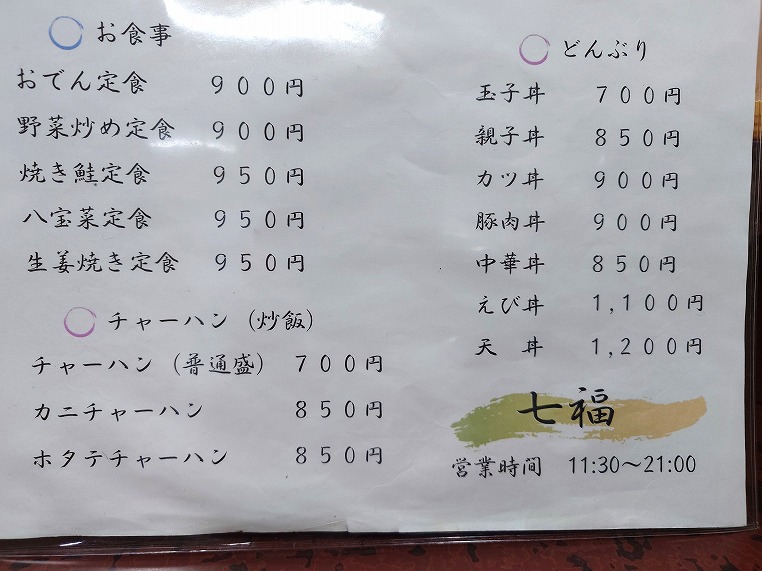 お食事
おでん定食 ９００円
野菜炒め定食 ９００円
焼き鮭定食 ９５０円
八宝菜定食 ９５０円
生姜焼き定食 ９５０円
チャーハン（炒飯）
チャーハン（普通盛） ７００円
カニチャーハン ８５０円
ホタテチャーハン ８５０円
どんぶり
玉子丼 ７００円
親子丼 ８５０円
カツ丼 ９００円
豚肉丼 ９００円
中華丼 ８５０円
えび丼 １,１００円
天　丼 １,２００円
七福
営業時間 11:30～21:00